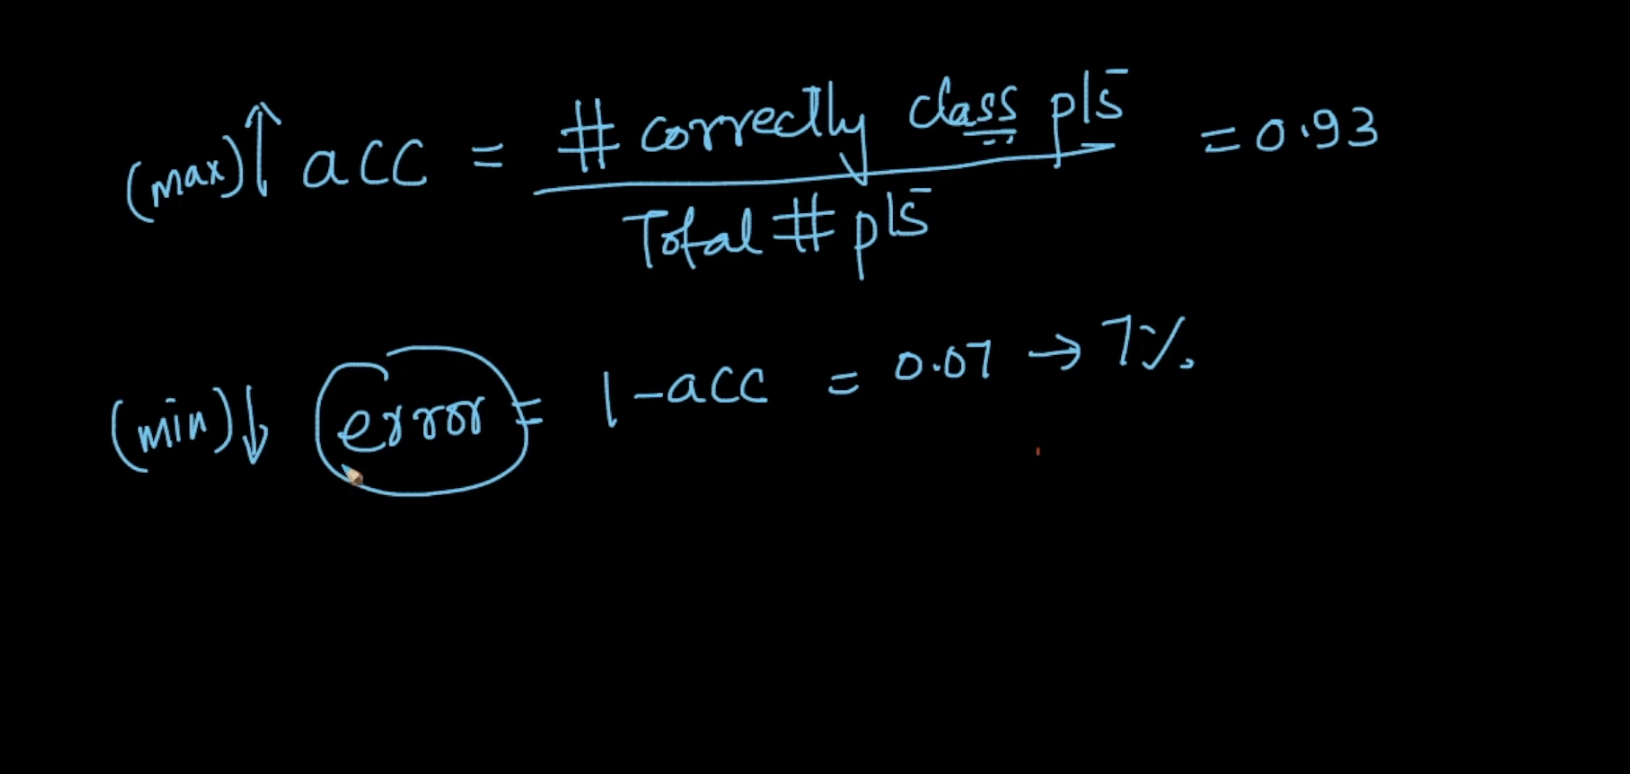 (max)↑ acc = # correctly class pts = 0.93
Total # pts
(min)↓ error = 1-acc = 0.07 → 7%